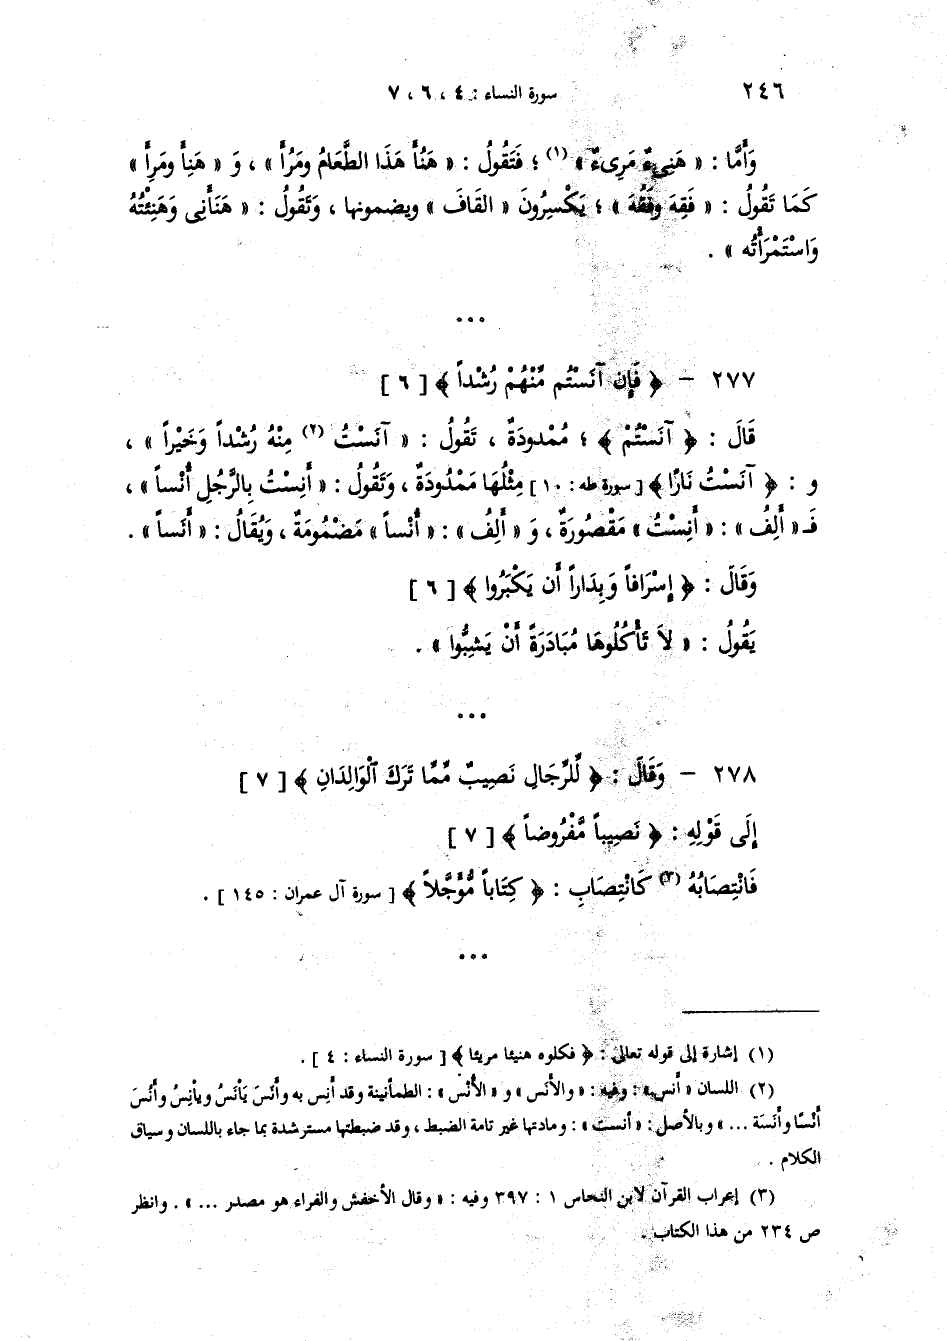 ٢٤٦ سورة النساء : ٤ ، ٦ ، ٧
وَأَمَّا : « هَنِيءٌ مَرِيءٌ » (١) ؛ فَتَقُولُ : « هَنُأَ هَذَا الطَّعَامُ ومَرُأَ » ، وَ « هَنِأَ ومَرِأَ »
كَمَا تَقُولُ : « فَقِهَ وفَقُهَ » ؛ يَكْسِرُونَ « القَافَ » ويضمونها ، وَتَقُولُ : « هَنَأَنِى وَهَنِئْتُهُ
وَاسْتَمْرَأْتُه » .
•••
٢٧٧ – ﴿ فَإِن آنَسْتُم مِّنْهُمْ رُشْداً ﴾ [ ٦ ]
قَالَ : ﴿ آنَسْتُمْ ﴾ ؛ مُمْدودَةٌ ، تَقُولُ : « آنَسْتُ (٢) مِنْهُ رُشْداً وَخَيْراً » ،
و : ﴿ آنَسْتُ نَارًا ﴾ [ سورة طه : ١٠ ] مِثْلُهَا مَمْدُودَةٌ ، وَتَقُولُ : « أَنِسْتُ بِالرَّجُلِ أُنْساً » ،
فَـ « أَلِفُ » : « أَنِسْتُ » مَقْصُورَةٌ ، وَ « أَلِفُ » : « أُنْساً » مَضْمُومَةٌ ، وَيُقَالُ : « أَنَساً » .
وَقَالَ : ﴿ إِسْرَافاً وَبِدَاراً أَن يَكْبَرُوا ﴾ [ ٦ ]
يَقُولُ : « لاَ تَأْكُلُوهَا مُبَادَرَةً أَنْ يَشِبُّوا » .
•••
٢٧٨ – وَقَالَ : ﴿ لِّلرِّجَالِ نَصِيبٌ مِّمَّا تَرَكَ ٱلْوَالِدَانِ ﴾ [ ٧ ]
إِلَى قَوْلِهِ : ﴿ نَصِيباً مَّفْرُوضاً ﴾ [ ٧ ]
فَانْتِصَابُهُ (٣) كَانْتِصَابِ : ﴿ كِتَاباً مُّؤَجَّلاً ﴾ [ سورة آل عمران : ١٤٥ ] .
•••
(١) إشارة إلى قوله تعالى : ﴿ فكلوه هنيئا مريئا ﴾ [ سورة النساء : ٤ ] .
(٢) اللسان « أنس » : وفيه : « والأنَس » و « الأُنْسْ » : الطمأنينة وقد أَنِس به وأنَسَ يَأْنَسُ ويأنِسُ وأَنُسَ
أُنْسًا وأَنَسَة ... » وبالأصل : « أنست » : ومادتها غير تامة الضبط ، وقد ضبطتها مسترشدة بما جاء باللسان وسياق
الكلام .
(٣) إعراب القرآن لابن النحاس ١ : ٣٩٧ وفيه : « وقال الأخفش والفراء هو مصدر ... » . وانظر
ص ٢٣٤ من هذا الكتاب .